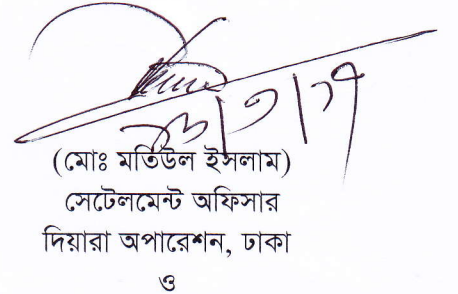 (মোঃ মতিউল ইসলাম)
সেটেলমেন্ট অফিসার
দিয়ারা অপারেশন, ঢাকা
ও